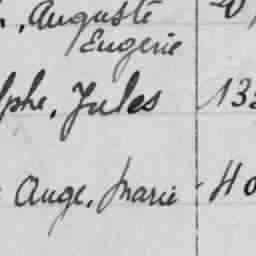 Auguste
Eugerie
lphe, Jules 13
Ange, Marie Ho